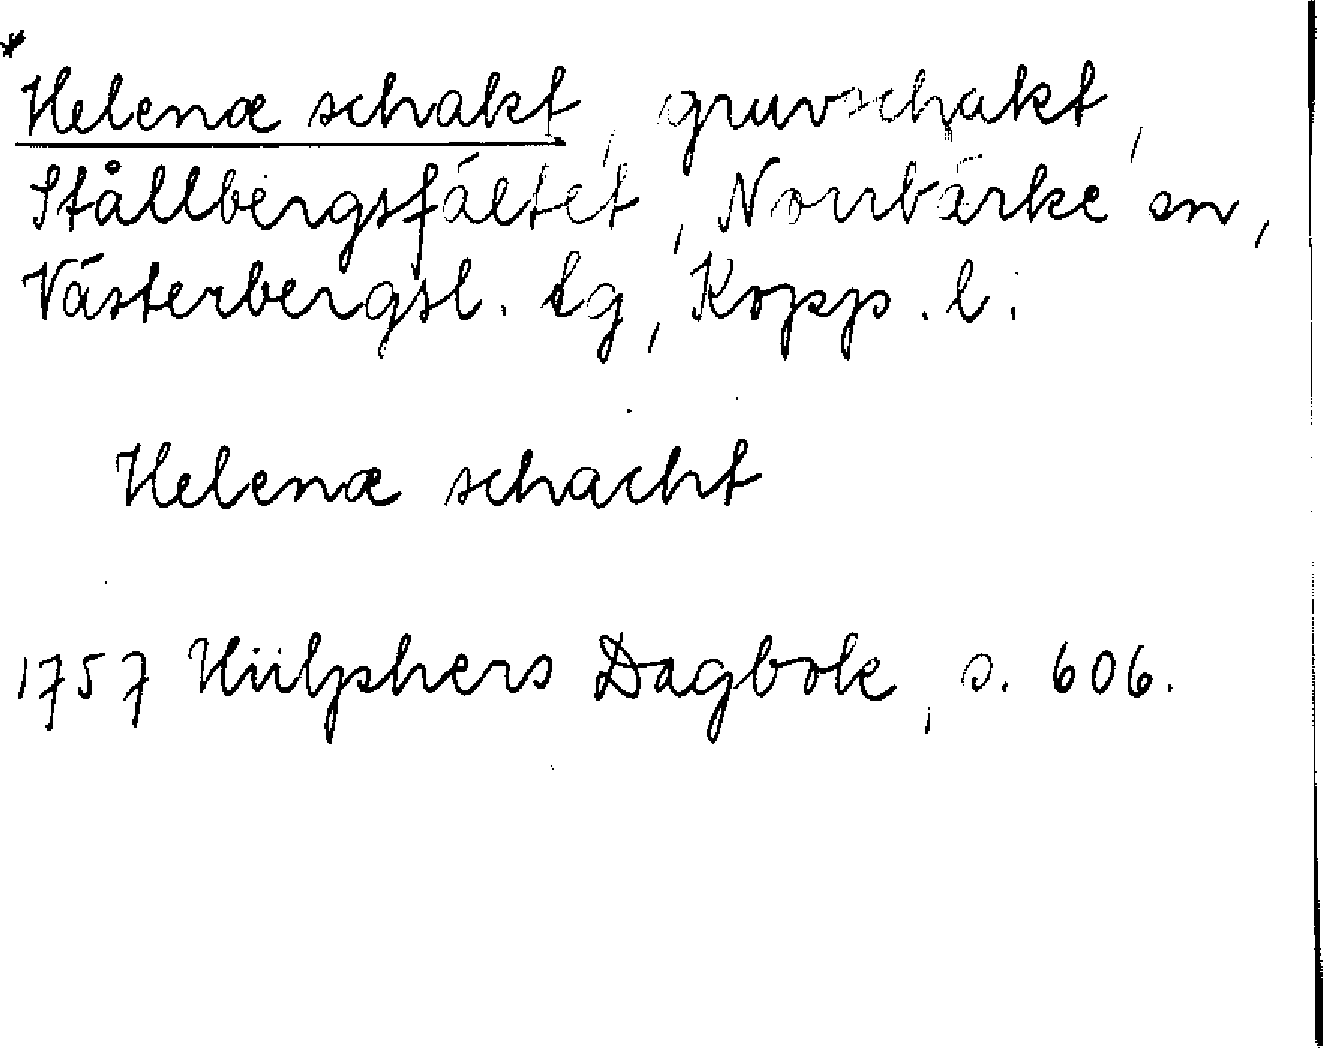 * Helenæ schakt, gruvschakt,
Stållbergsfältet, Norrbärke sn,
Västerbergsl. tg, Kopp. l.
Helenæ schacht
1757 Hülphers Dagbok, s. 606.